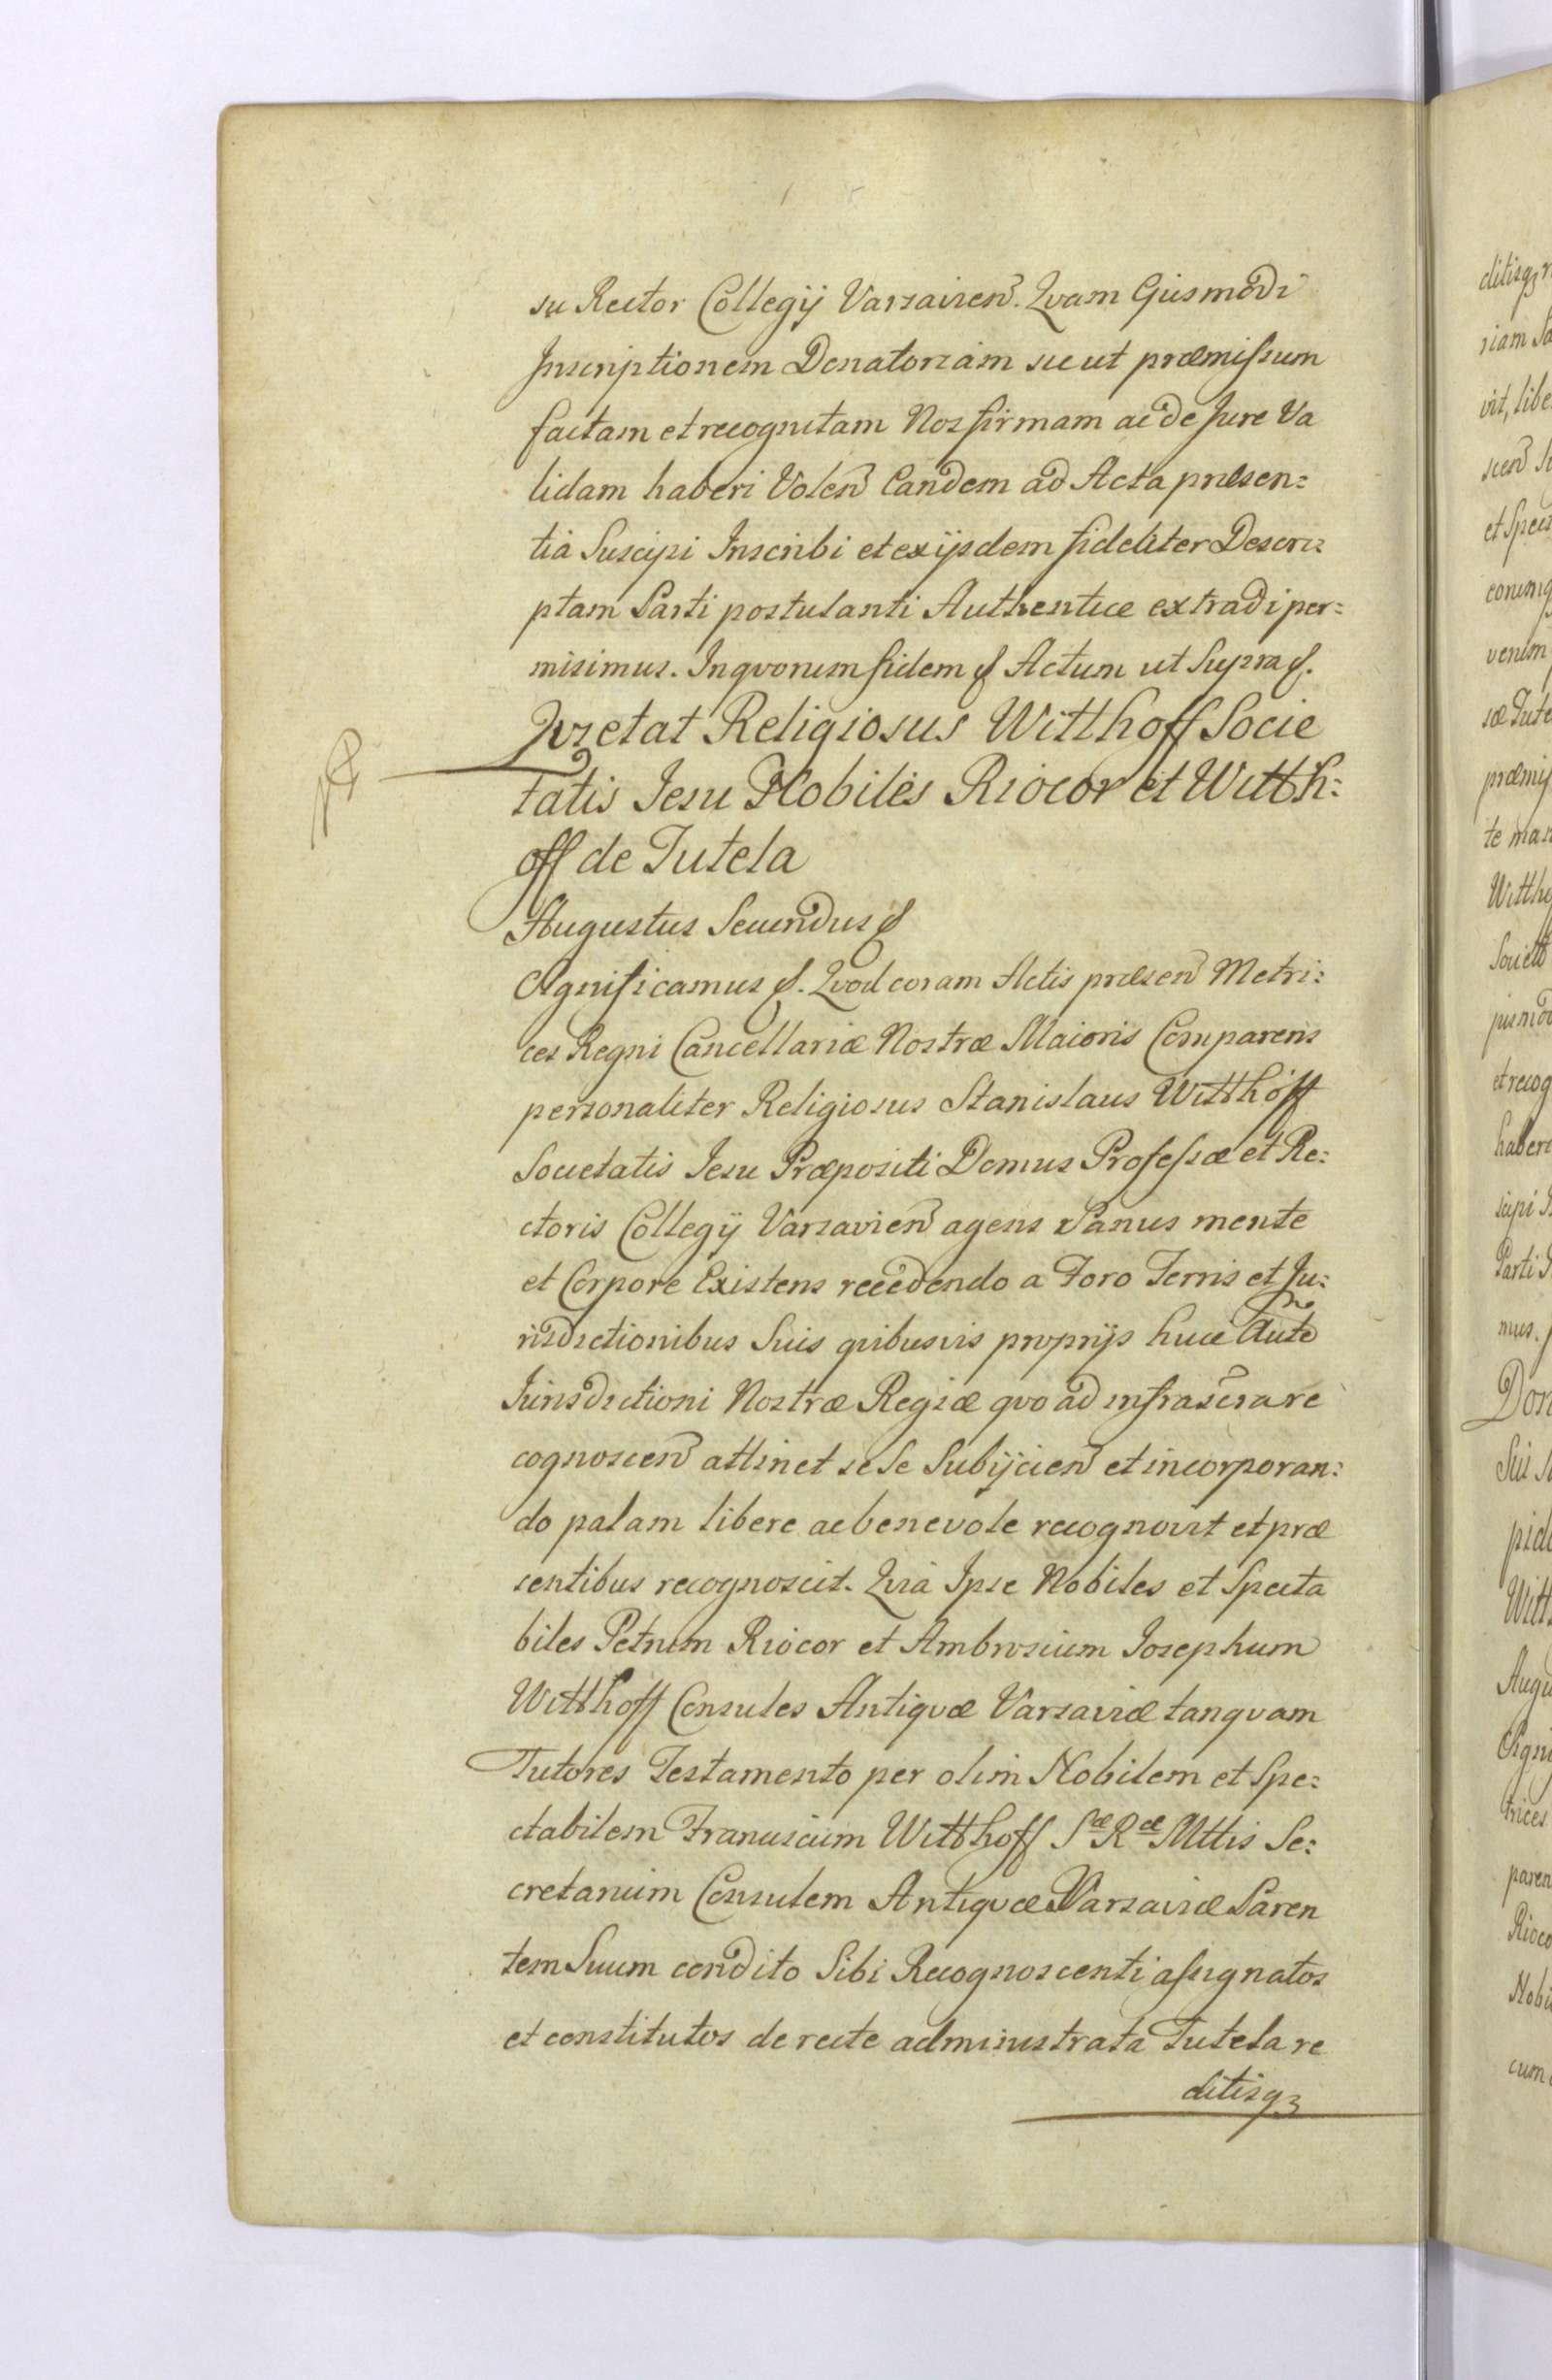 su Rector Collegij Varsavien. Qvam Eiusmodi
Inscriptionem Donatoriam sic ut præmissum
factam et recognitam Nos firmam ac de Jure Va
lidam haberi Volen Eandem ad Acta præsen=
tia Suscipi Inscribi et ex ijsdem fideliter Descri=
ptam Parti postulanti Authentice extradi per=
misimus. In qvorum fidem &. Actum ut Supra &.
Qvietat Religiosus Witthoff Socie
tatis Jesu Nobiles Riocor et Witth=
off de Tutela
Augustus Secundus &
Significamus &. Qvod coram Actis præsen Metri=
ces Regni Cancellariæ Nostræ Maioris Comparens
personaliter Religiosus Stanislaus Witthoff
Societatis Jesu Præpositi Domus Professæ et Re=
ctoris Collegij Varsavien agens Sanus mente
et Corpore Existens recedendo a Foro Terris et Ju=
risdictionibus Suis qvibusvis proprijs huic Auto
Jurisdictioni Nostræ Regiæ qvo ad infrascra re
cognoscen attinet se Se Subijcien et incorporan=
do palam libere ac benevole recognovit et præ
sentibus recognoscit. Qvia Ipse Nobiles et Specta
biles Petrum Riocor et Ambrosium Josephum
Witthoff Consules Antiqvæ Varsaviæ tanqvam
Tutores Testamento per olim Nobilem et Spe=
ctabilem Franciscum Witthoff Sæ Ræ Mttis Se=
cretarium Consulem Antiqvæ Varsaviæ Paren
tem Suum condito Sibi Recognoscenti assignatos
et constitutos de recte administrata Tutela re
ditisq3
ditisq3
riam
vit, libe
scen
et Spec
venim
præmis
te
Witth
et recog
haberi
Parti
mus.
Don
Witt
Augu
Signi
trices
paren
Rioco
Nobi
cum